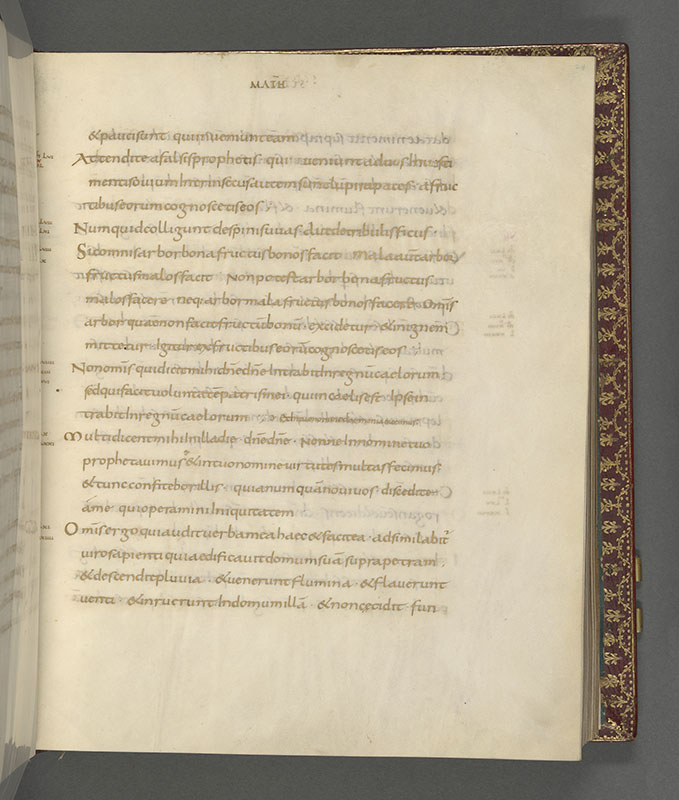 MATH
& pauci sunt qui inveniunt eam
Attendite a falsis prophetis qui veniunt ad vos In vesti
mentis ovium Intrinsecus autem sunt lupi rapaces a fruc
tibus eorum cognoscetis eos
Numquid colligunt de spinis uvas aut de tribulis ficus
Sic omnis arbor bona fructus bonos facit mala aut arbor
fructus malos facit Non potest arbor bona fructus
malos facere neq· arbor mala fructus bonos facere Omis
arbor quae non facit fructū bonū excidetur & in ignem
mittetur Igitur ex fructibus eorū cognoscetis eos
Non omis qui dicit mihi dne dne Intrabit In regnū caelorum
sed qui facit voluntatē patris mei qui in caelis est Ipse in
trabit In regnū caelorum
Multi dicent mihi In illa die dne dne Nonne In nomine tuo
prophetavimus & in tuo nomine virtutes multas fecimus
& tunc confitebor illis quia numquā novi vos discedite
a me qui operamini Iniquitatem
Omis ergo qui audit verba mea haec & facit ea adsimilabit
viro sapienti qui aedificavit domum suā supra petram
& descendit pluvia & venerunt flumina & flaverunt
venti & inruerunt In domum illā & non cecidit fun